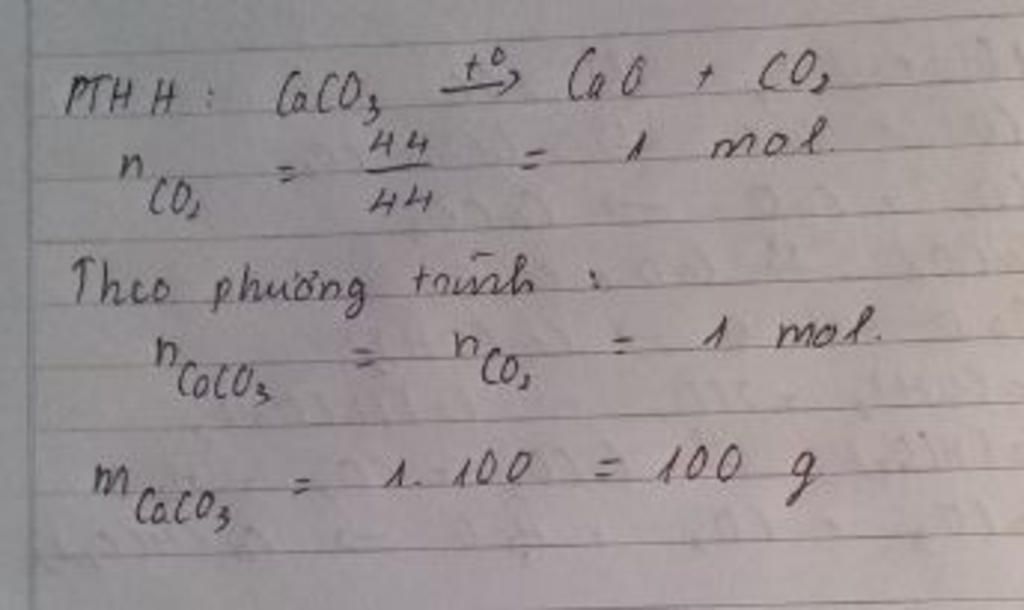 PTHH: CaCO₃ →(t°) CaO + CO₂
n CO₂ = 44/44 = 1 mol.
Theo phương trình:
n CaCO₃ = n CO₂ = 1 mol.
m CaCO₃ = 1. 100 = 100 g